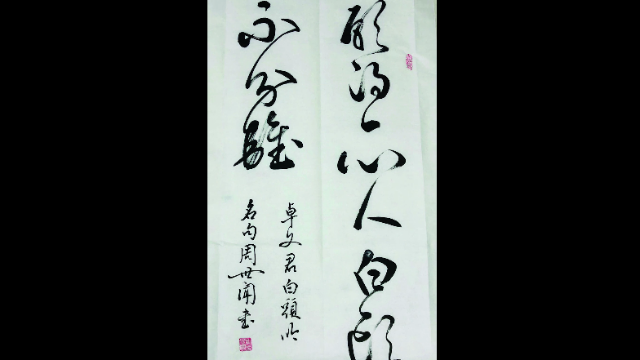 願得一心人白頭
不分離
卓文君白頭吟
名句周世聞書